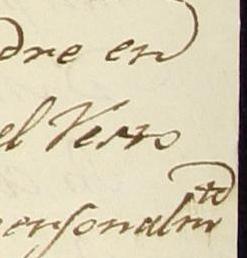 dre en
el Verso
personalm.te